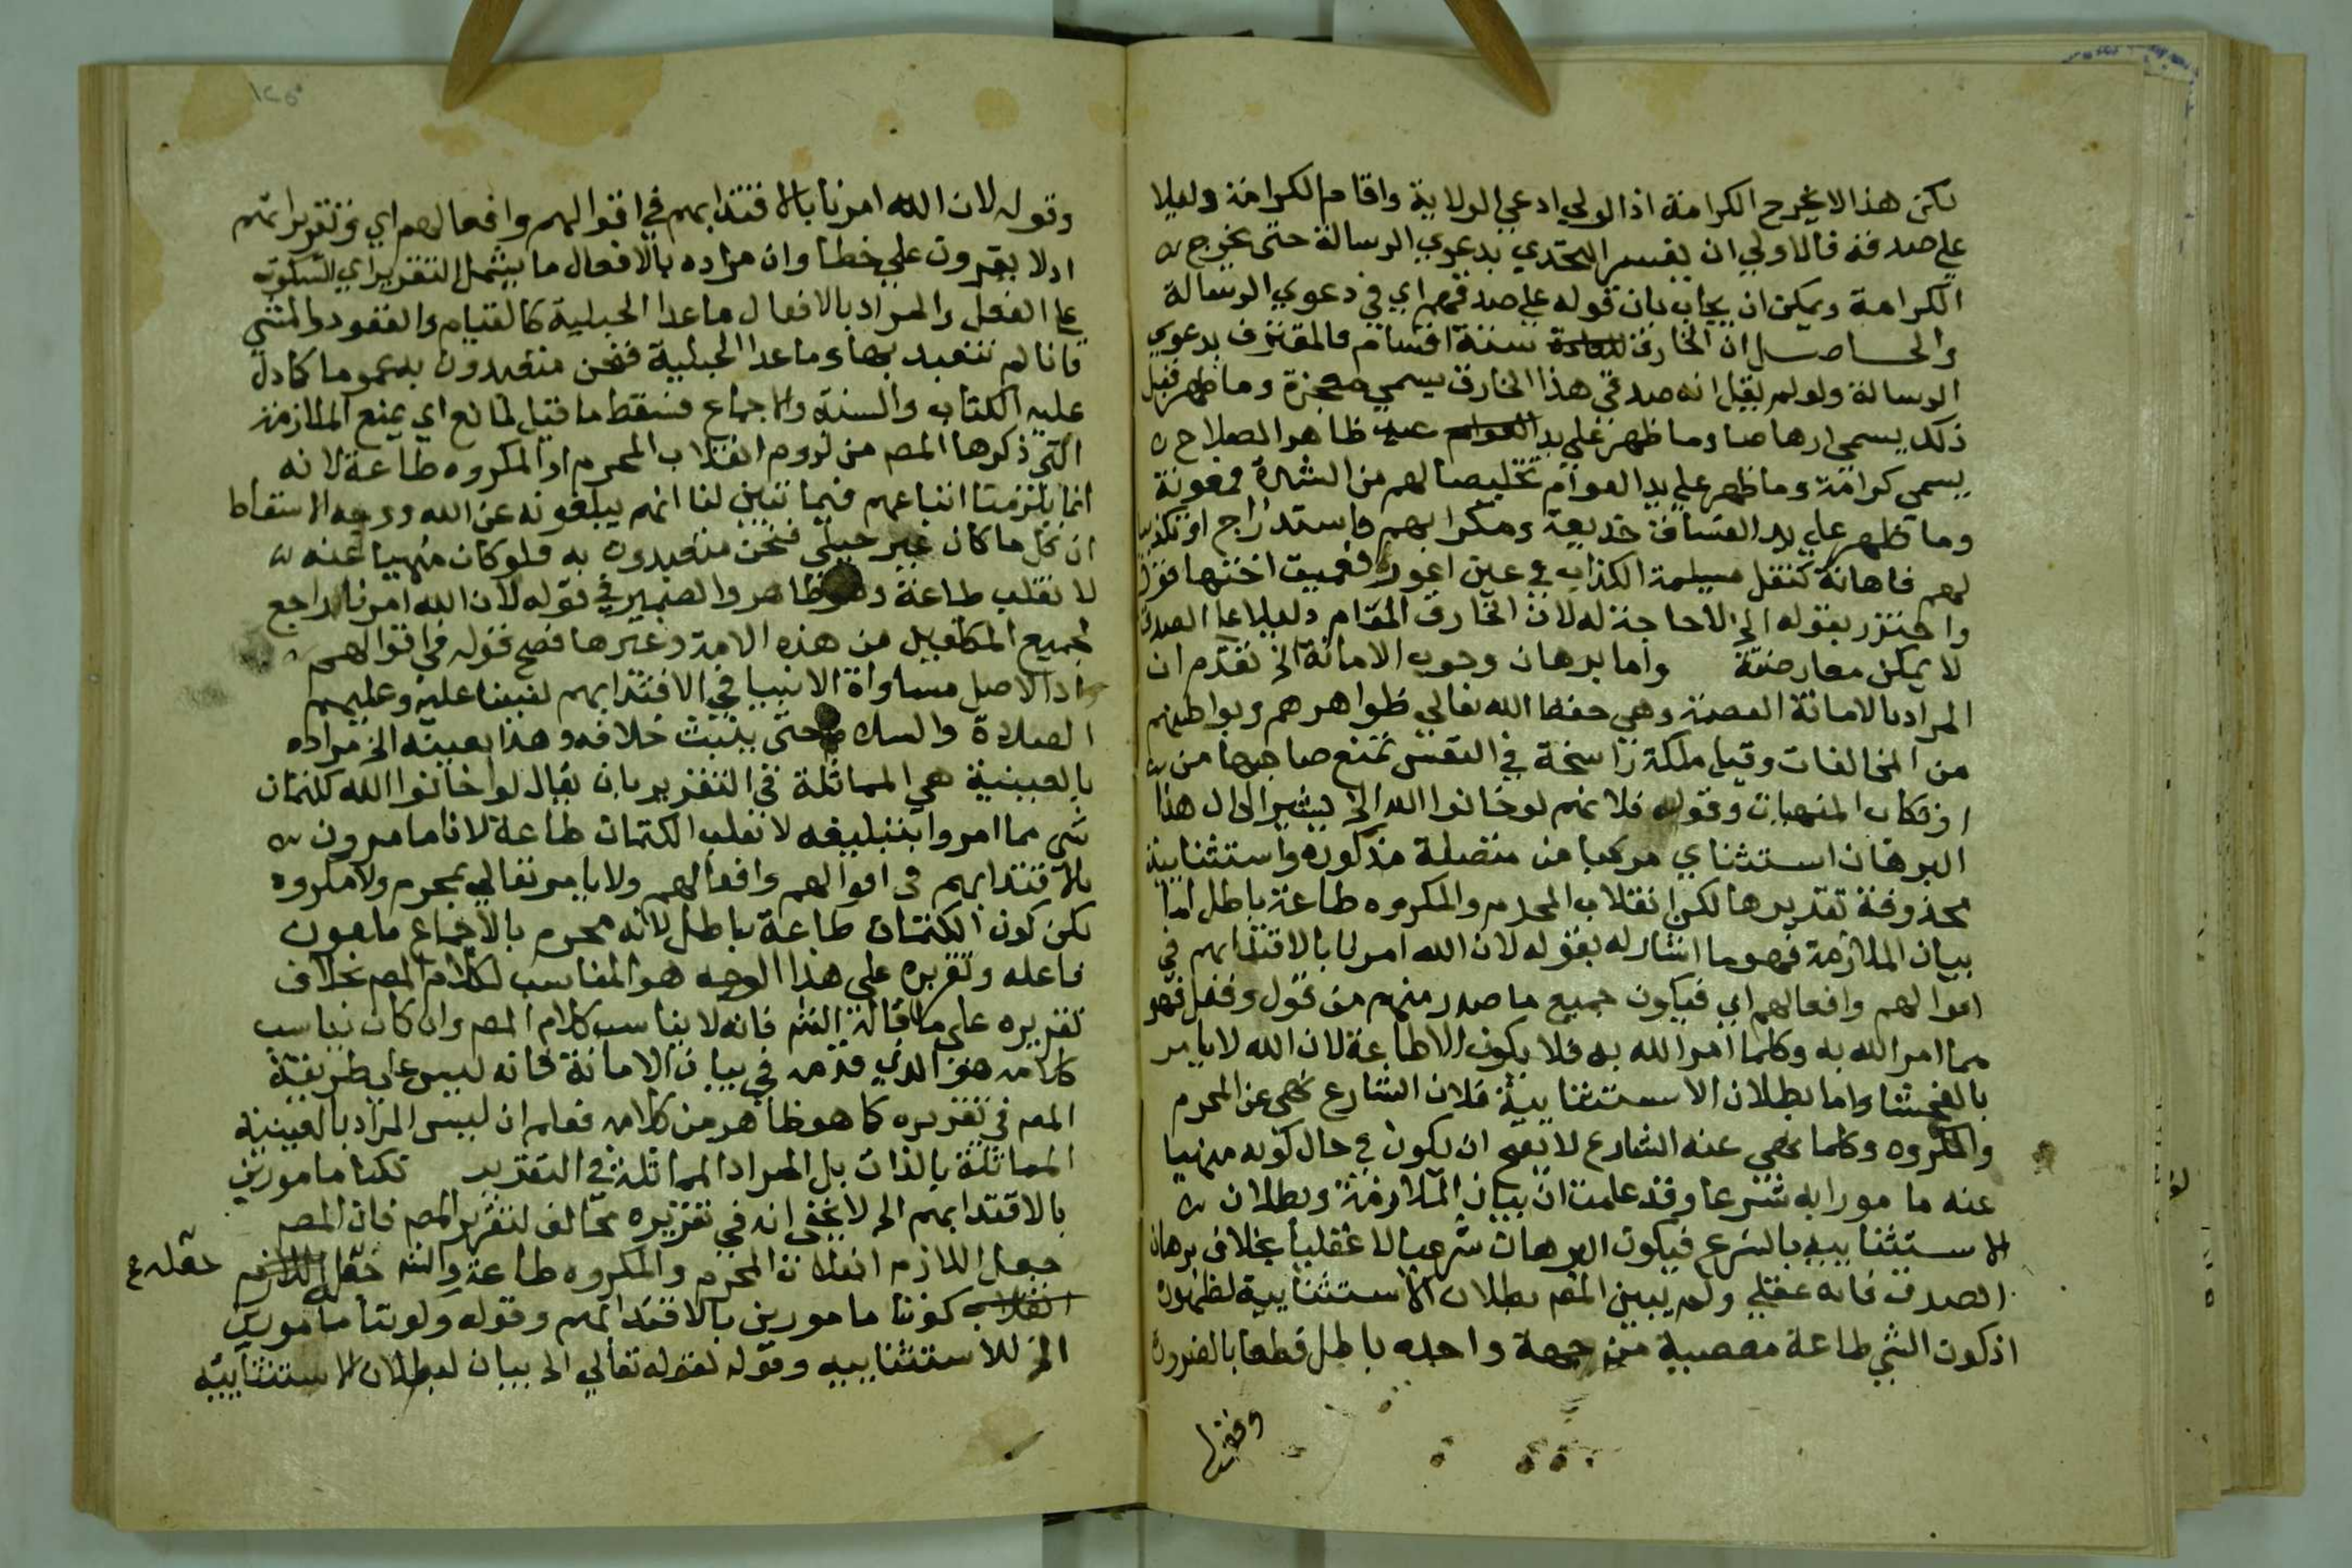 لكن هذا لا يخرج الكرامة اذ الولي ادعي الولاية واقام الكرامة دليلا
علي صدقه فالاولي ان يفسر التحدي بدعوي الرسالة حتى يخرج
الكرامة ويمكن ان يجاب بان قوله علي صدقهم اي في دعوي الرسالة
والحاصل ان الخارق للعادة ستة اقسام فالمقترن بدعوي
الرسالة ولو لم يقل انه صدقي هذا الخارق يسمي معجزة وما ظهر قبل
ذلك يسمى ارهاصا وما ظهر علي يد العوام عبد ظاهر الصلاح
يسمى كرامة وما ظهر علي يد العوام تخليصا لهم من الشدة فمعونة
وما ظهر علي يد الفساق خديعة ومكرا بهم فاستدراج او تكذيبا
لهم فاهانة كتفل مسيلمة الكذاب في عين اعور فعميت اختها
واحترز بقوله الخ لا حاجة له لان الخارق المقام دليلا علي الصدق
لا يمكن معارضته واما برهان وجوب الامانة الخ تقدم ان
المراد بالامانة العصمة وهي حفظ الله تعالي ظواهرهم وبواطنهم
من المخالفات وقيل ملكة راسخة في النفس تمنع صاحبها من
ارتكاب المنهيات وقوله فلانهم لو خانوا الله الخ يشير الي ان هذا
البرهان استثناي مركبا من متصلة مذكورة واستثنايية
محذوفة تقديرها لكن انقلاب المحرم والمكروه طاعة باطل اما
بيان الملازمة فهو ما اشار له بقوله لان الله امرنا بالاقتدا بهم في
اقوالهم وافعالهم اي فيكون جميع ما صدر منهم من قول وفعل فهو
مما امر الله به وكلما امر الله به فلا يكون الا طاعة لان الله لا يامر
بالفحشا واما بطلان الاستثنايية فلان الشارع نهى عن المحرم
والمكروه وكلما نهى عنه الشارع لا يصح ان يكون في حال كونه منهيا
عنه مامورا به شرعا وقد علمت ان بيان الملازمة وبطلان
الاستثنايية بالشرع فيكون البرهان شرعيا لا عقليا بخلاف برهان
الصدق فانه عقلي ولم يبين المص بطلان الاستثنايية لظهوره
اذ كون الشي طاعة معصية من جهة واحدة باطل قطعا بالضرورة
وقوله لان الله امرنا بالاقتدا بهم في اقوالهم وافعالهم اي وتقريراتهم
اذ لا يقرون علي خطا وان مراده بالافعال ما يشمل التقرير اي السكوت
علي الفعل والمراد بالافعال ما عدا الجبلية كالقيام والقعود والمشي
فانا لم نتعبد بها وما عدا الجبلية فنحن متعبدون به عموما كما دل
عليه الكتاب والسنة والاجماع فسقط ما قيل لمانع اي يمنع الملازمة
التي ذكرها المص من لزوم انقلاب المحرم او المكروه طاعة لانه
انما يلزمنا اتباعهم فيما تبين لنا انهم يبلغونه عن الله ووجه الاسقاط
ان كل ما كان غير جبلي فنحن متعبدون به فلو كان منهيا عنه
لانقلب طاعة وهو ظاهر والضمير في قوله لان الله امرنا راجع
لجميع المكلفين من هذه الامة وغيرها فصح قوله في اقوالهم
اذ الاصل مساواة الانبيا في الاقتدا بهم لنبينا عليه وعليهم
الصلاة والسلام حتى يثبت خلافه وهذا بعينه الخ مراده
بالعينية هي المماثلة في التقرير بان يقال لو خانوا الله بكتمان
شي مما امروا بتبليغه لانقلب الكتمان طاعة لانا مامورون
بالاقتدا بهم في اقوالهم وافعالهم ولا يامر تعالي بمحرم ولا مكروه
لكن كون الكتمان طاعة باطل لانه محرم بالاجماع ملعون
فاعله وتقريره علي هذا الوجه هو المناسب لكلام المص بخلاف
تقريره على ما قاله الشم فانه لا يناسب كلام المص وان كان يناسب
كلامه هو الذي قدمه في بيان الامانة فانه ليس علي طريقة
المص في تقريره كما هو ظاهر من كلامه فعلم ان ليس المراد بالعينية
المماثلة بالذات بل المراد المماثلة في التقرير لكنا مامورين
بالاقتدا بهم الخ لا يخفي انه في تقريره مخالف لتقرير المص فان المص
جعل اللازم انقلاب المحرم والمكروه طاعة والشم جعل اللازم جعله ع
انقلاب كوننا مامورين بالاقتدا بهم وقوله وكوننا مامورين
الخ للاستثنايية وقوله لقوله تعالي الخ بيان لبطلان الاستثنايية